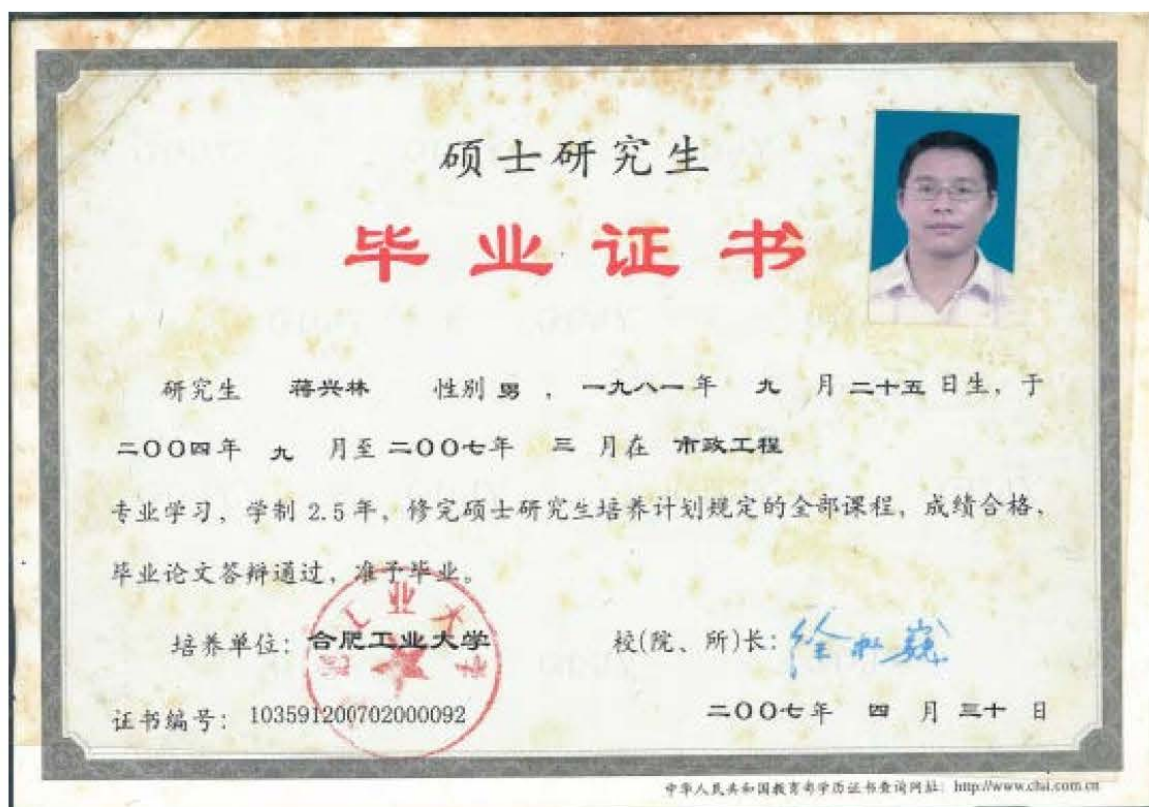 硕士研究生
毕业证书
研究生 蒋兴林 性别 男 , 一九八一 年 九 月 二十五 日生, 于
二〇〇四年 九 月至 二〇〇七年 三 月在 市政工程
专业学习, 学制 2.5 年, 修完硕士研究生培养计划规定的全部课程, 成绩合格,
毕业论文答辩通过, 准予毕业。
培养单位: 合肥工业大学
校(院、所)长:
证书编号: 103591200702000092
二〇〇七年 四 月 三十 日
中华人民共和国教育部学历证书查询网址: http://www.chsi.com.cn